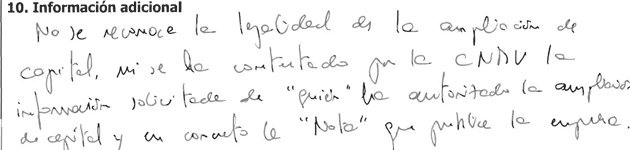 10. Información adicional
No se reconoce la legalidad de la ampliación de
capital, ni se ha contestado por la CNMV la
información solicitada de "quién" ha autorizado la ampliación
de capital y en concreto la "Nota" que publica la empresa.